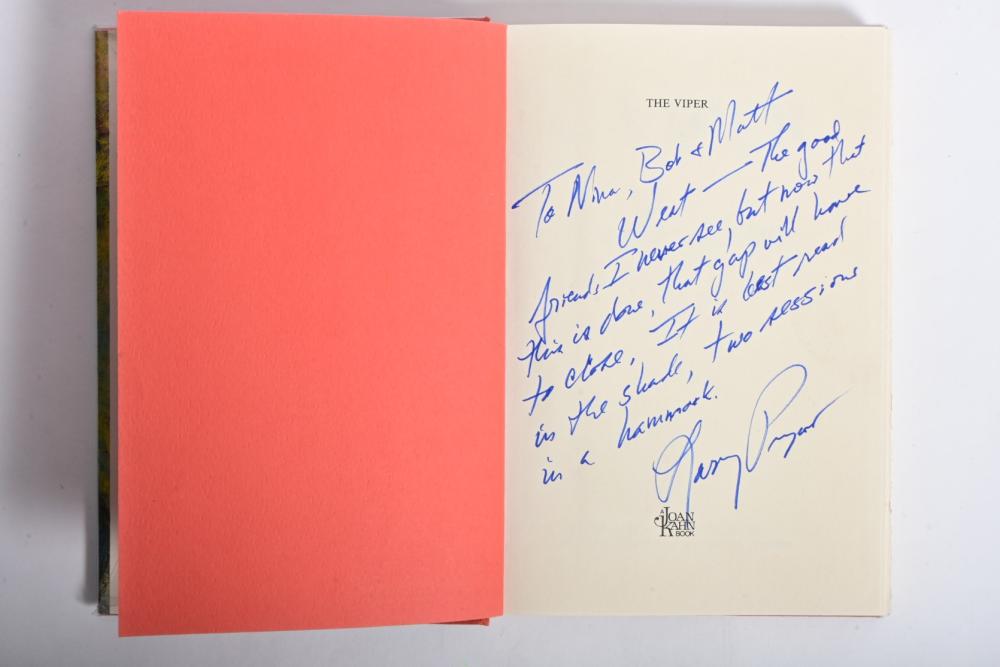 THE VIPER
To Nina, Bob & Matt
West — The good
friends I never see, but now that
this is done, that gap will have
to close. It is best read
in the shade, two sessions
in a hammock.
Larry Pryor
A
JOAN
KAHN
BOOK